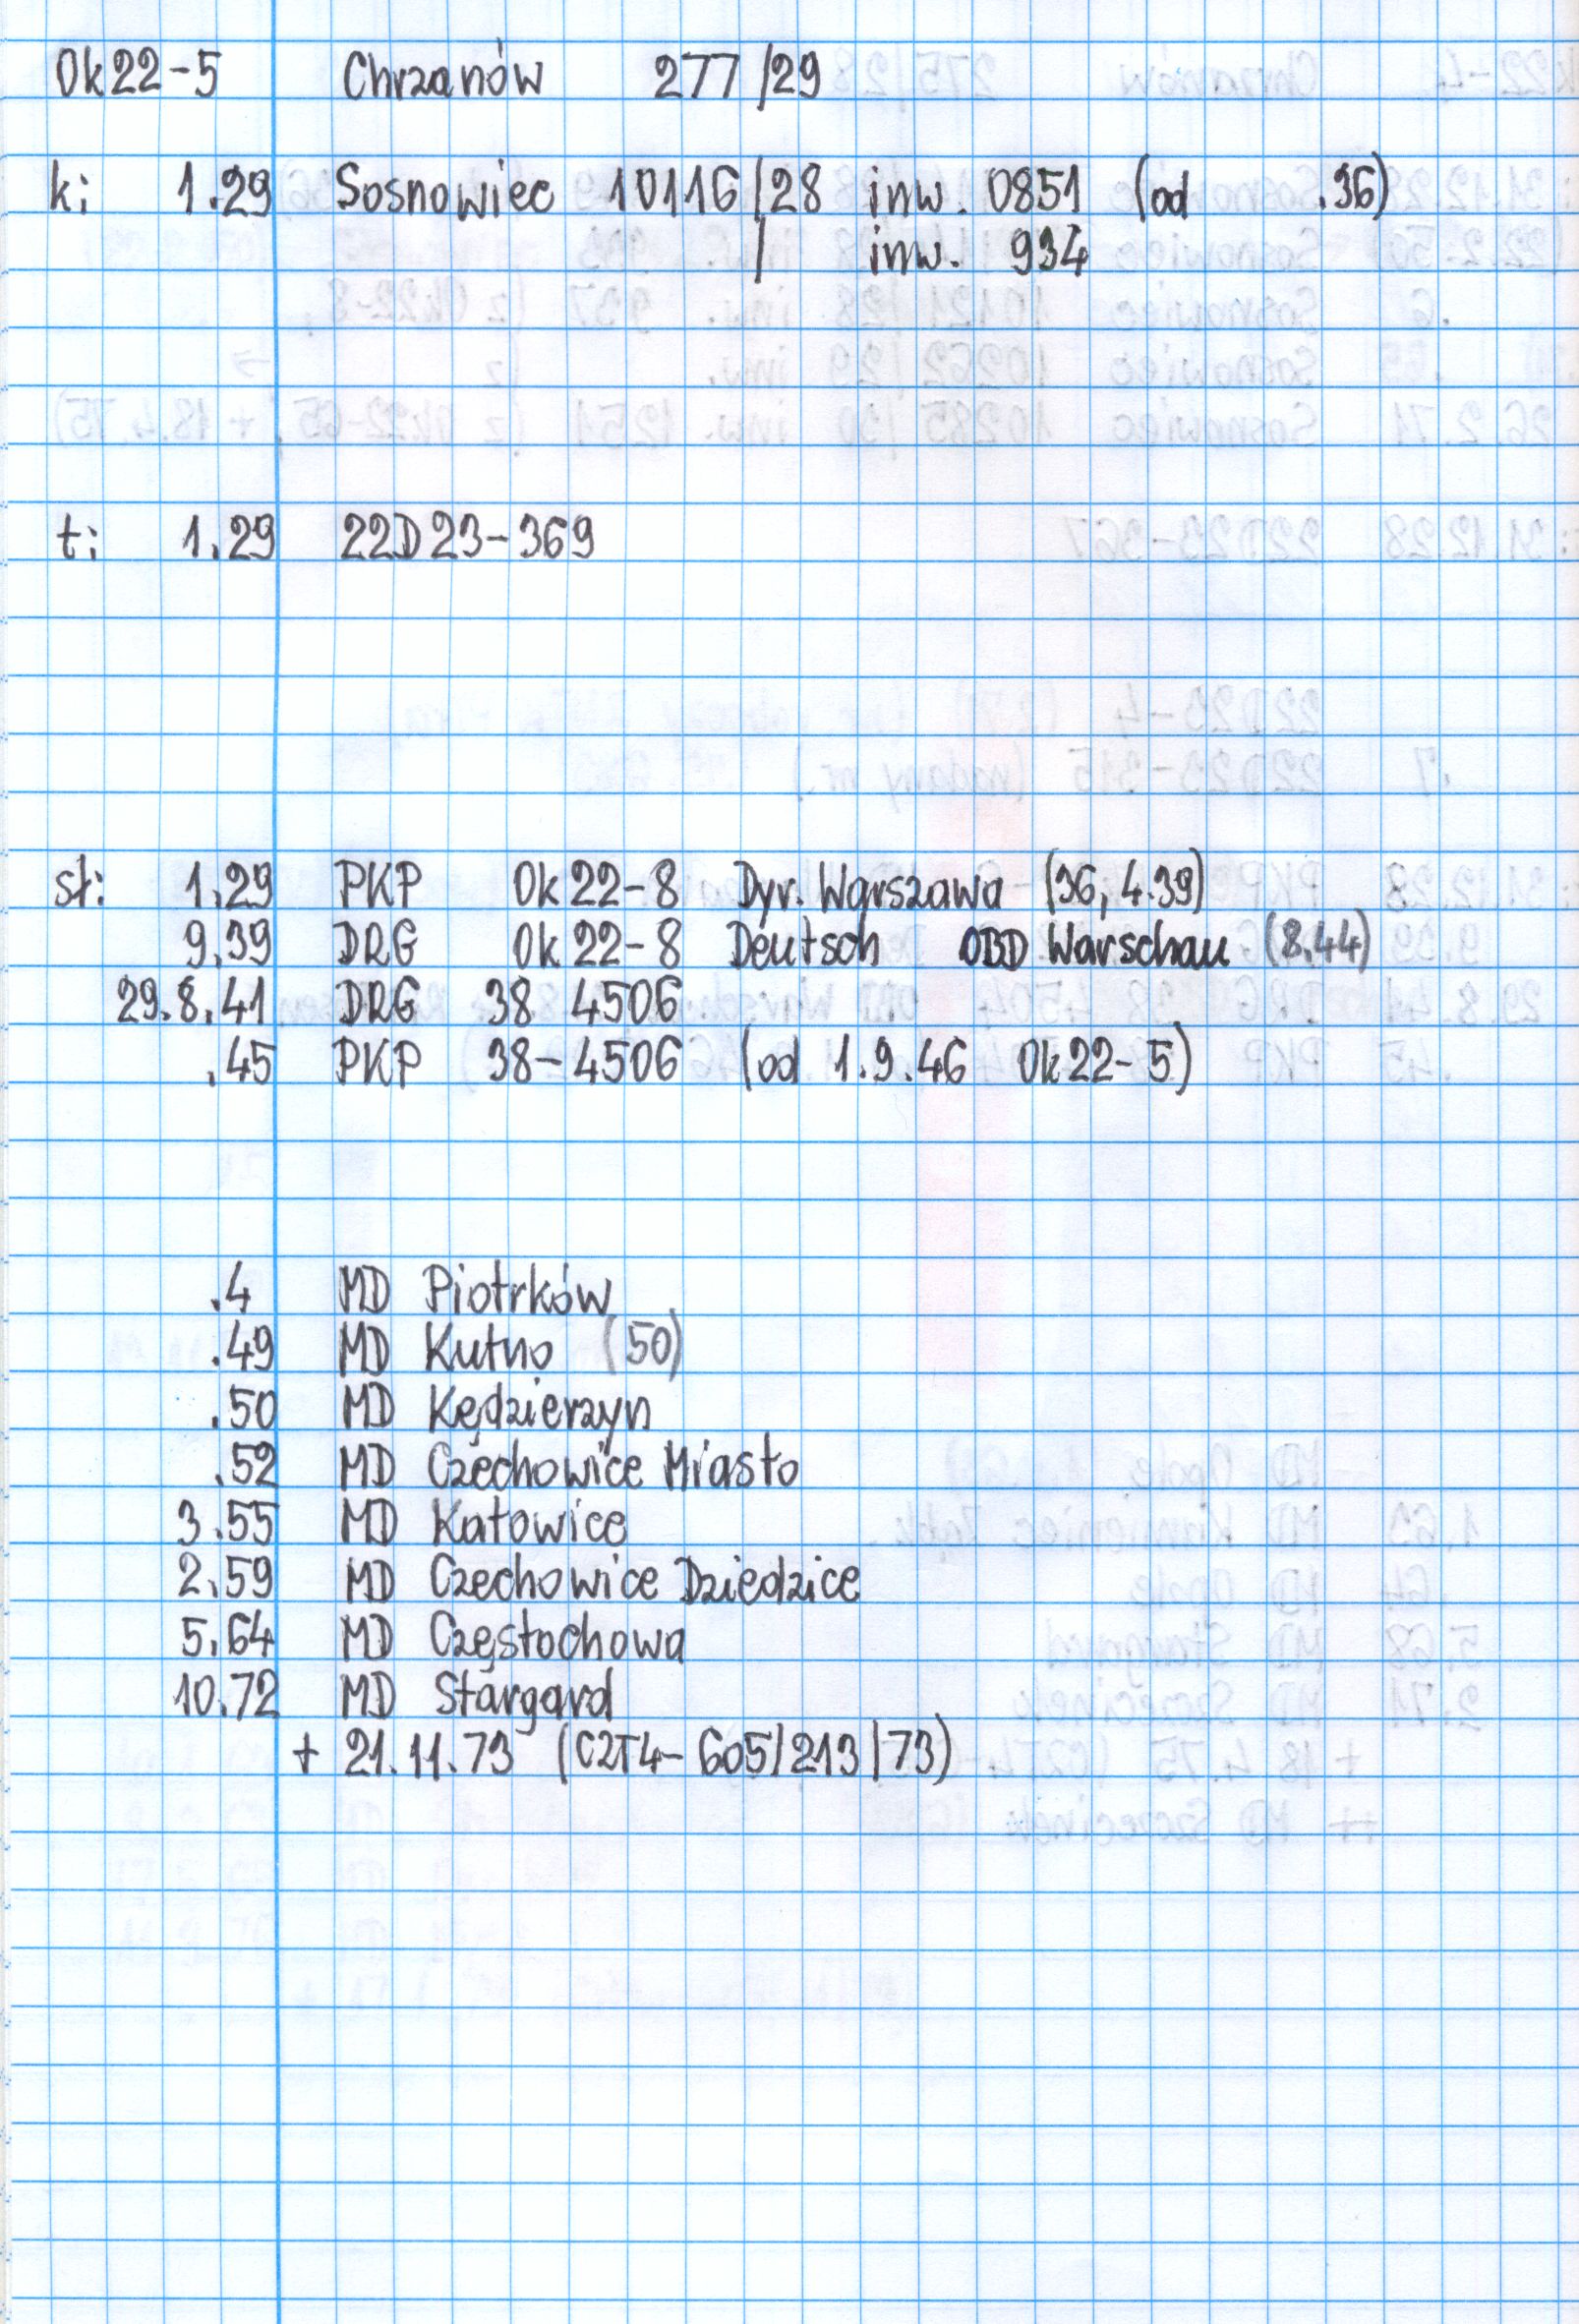 Ok22-5 Chrzanów 277/29
k: 1.29 Sosnowiec 10116/28 inw. 0851 (od .36)
/ inw. 934
t: 1.29 22D23-369
st: 1.29 PKP Ok22-8 Dyr. Warszawa (36, 4.39)
9.39 DRG Ok22-8 Deutsch OBD Warschau (8.44)
29.8.41 DRG 38 4506
.45 PKP 38-4506 (od 1.9.46 Ok22-5)
.4 MD Piotrków
.49 MD Kutno (50)
.50 MD Kędzierzyn
.52 MD Czechowice Miasto
3.55 MD Katowice
2.59 MD Czechowice Dziedzice
5.64 MD Częstochowa
10.72 MD Stargard
+ 21.11.73 (C2T4-605/213/73)